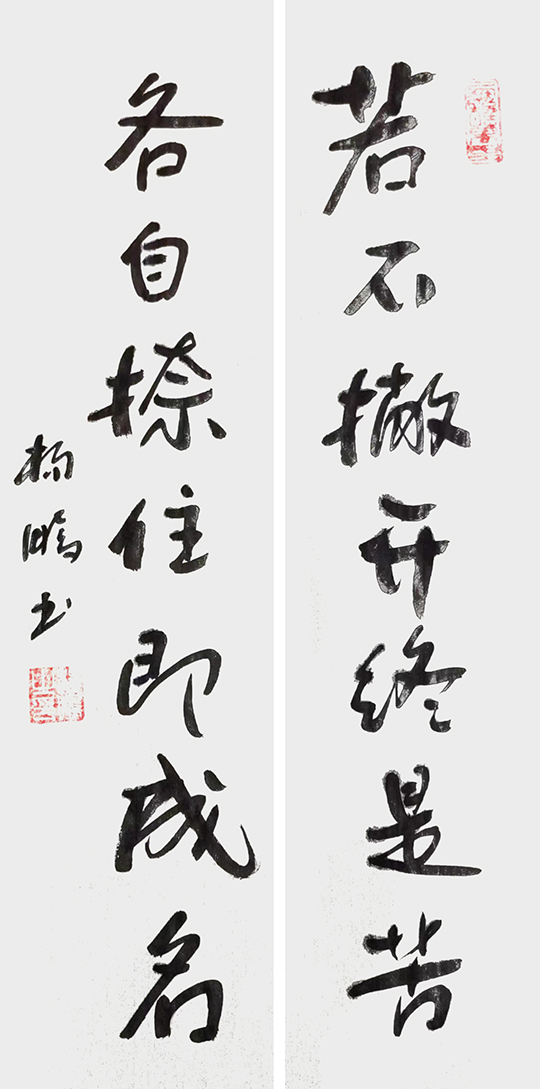 若不撇开终是苦
各自捺住即成名
杨鹏书